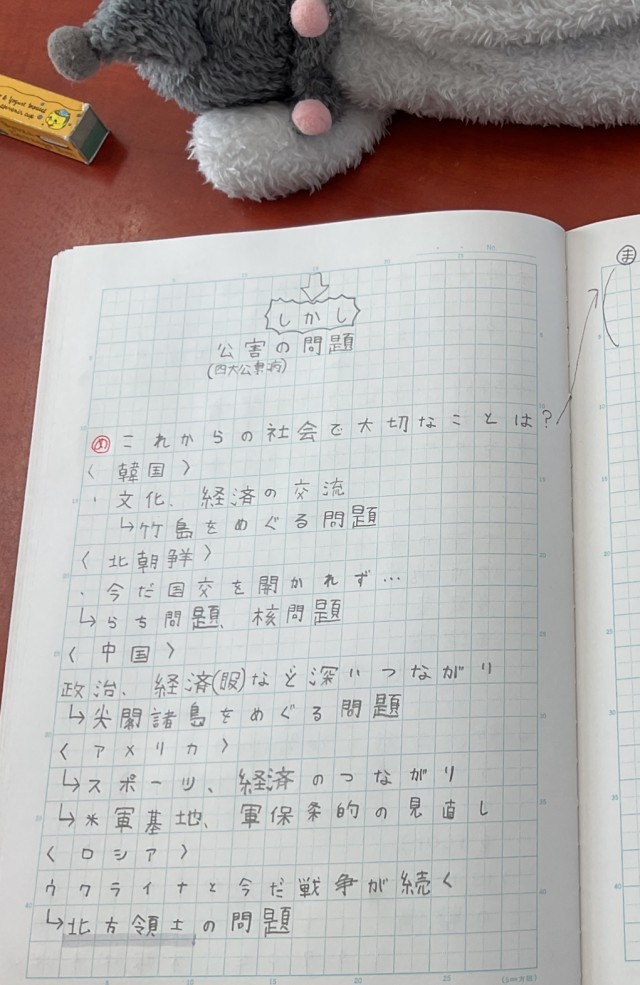 しかし
公害の問題
(四大公害病)
め これからの社会で大切なことは?
〈韓国〉
・文化、経済の交流
↳竹島をめぐる問題
〈北朝鮮〉
・今だ国交を開かれず…
↳らち問題、核問題
〈中国〉
政治、経済(服)など深いつながり
↳尖閣諸島をめぐる問題
〈アメリカ〉
↳スポーツ、経済のつながり
↳米軍基地、軍保条的の見直し
〈ロシア〉
ウクライナと今だ戦争が続く
↳北方領土の問題
ま